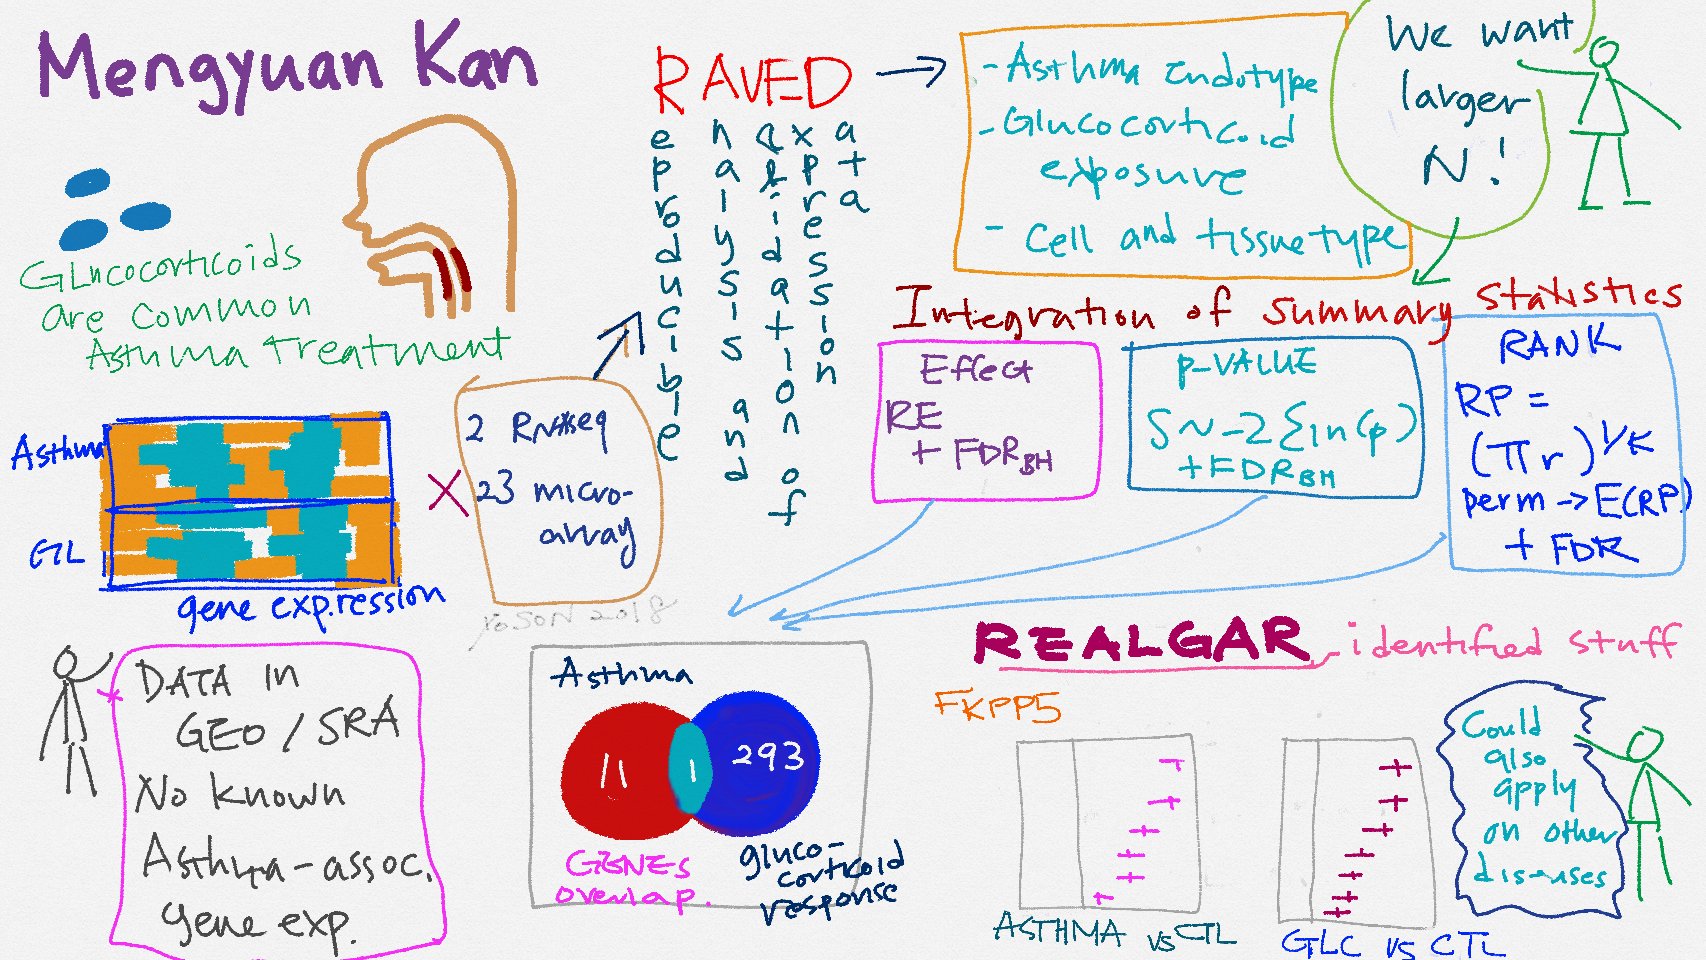 Mengyuan Kan
Glucocorticoids
are common
Asthma treatment
Asthma
GL
gene expression
X
2 RNAseq
23 micro-
array
RAVED
Reproducible
Analysis and
Validation of
Expression
Data
- Asthma Endotype
- Glucocorticoid
exposure
- Cell and tissue type
We want
larger
N!
Integration of summary statistics
Effect
RE
+ FDR BH
p-VALUE
S ~ -2 Σ ln(p)
+ FDR BH
RANK
RP =
(πr)^1/K
perm -> E(RP)
+ FDR
2018
DATA in
GEO / SRA
No known
Asthma-assoc.
gene exp.
Asthma
11
1
293
GENES
overlap.
gluco-
corticoid
response
REALGAR - identified stuff
FKPP5
ASTHMA vs CTL
GLC vs CTL
Could
also
apply
on other
diseases